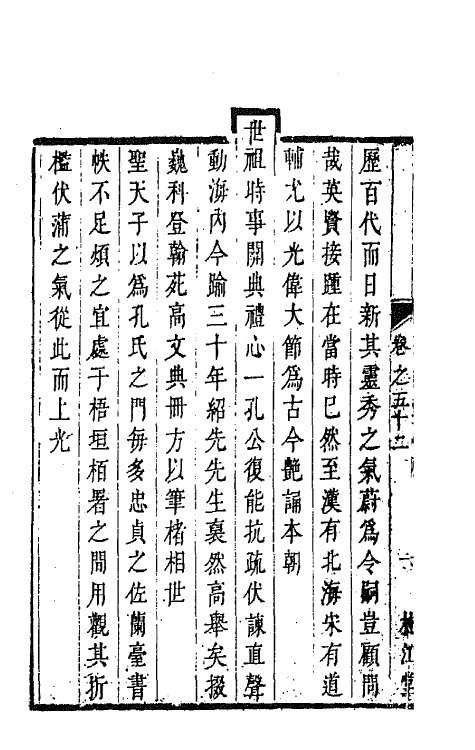 歷百代而日新其靈秀之氣蔚爲令嗣豈顧問
哉英賢接踵在當時已然至漢有北海宋有道
輔尤以光偉大節爲古今艶誦本朝
世祖時事開典禮心一孔公復能抗疏伏諫直聲
動海内今踰三十年紹先先生裒然高舉矣掇
巍科登翰苑高文典冊方以筆楮相世
聖天子以爲孔氏之門每多忠貞之佐蘭臺書
帙不足煩之宜處于梧垣栢署之間用觀其折
檻伏蒲之氣從此而上光
卷之五十二